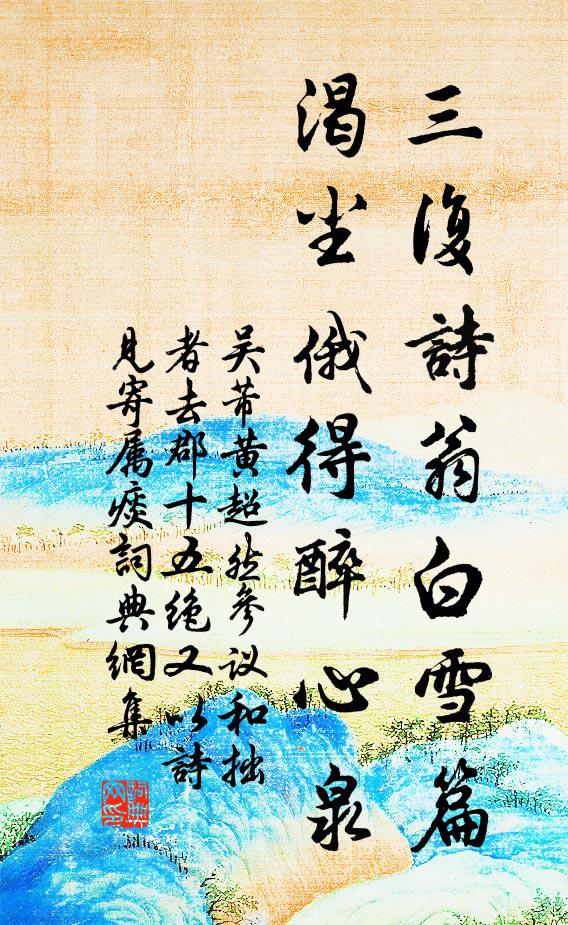 三復詩翁白雪篇
渴坐俄得醉心泉
吴芾黄超然參议和拙
者去郡十五绝又以詩
見寄属痰詞典網集